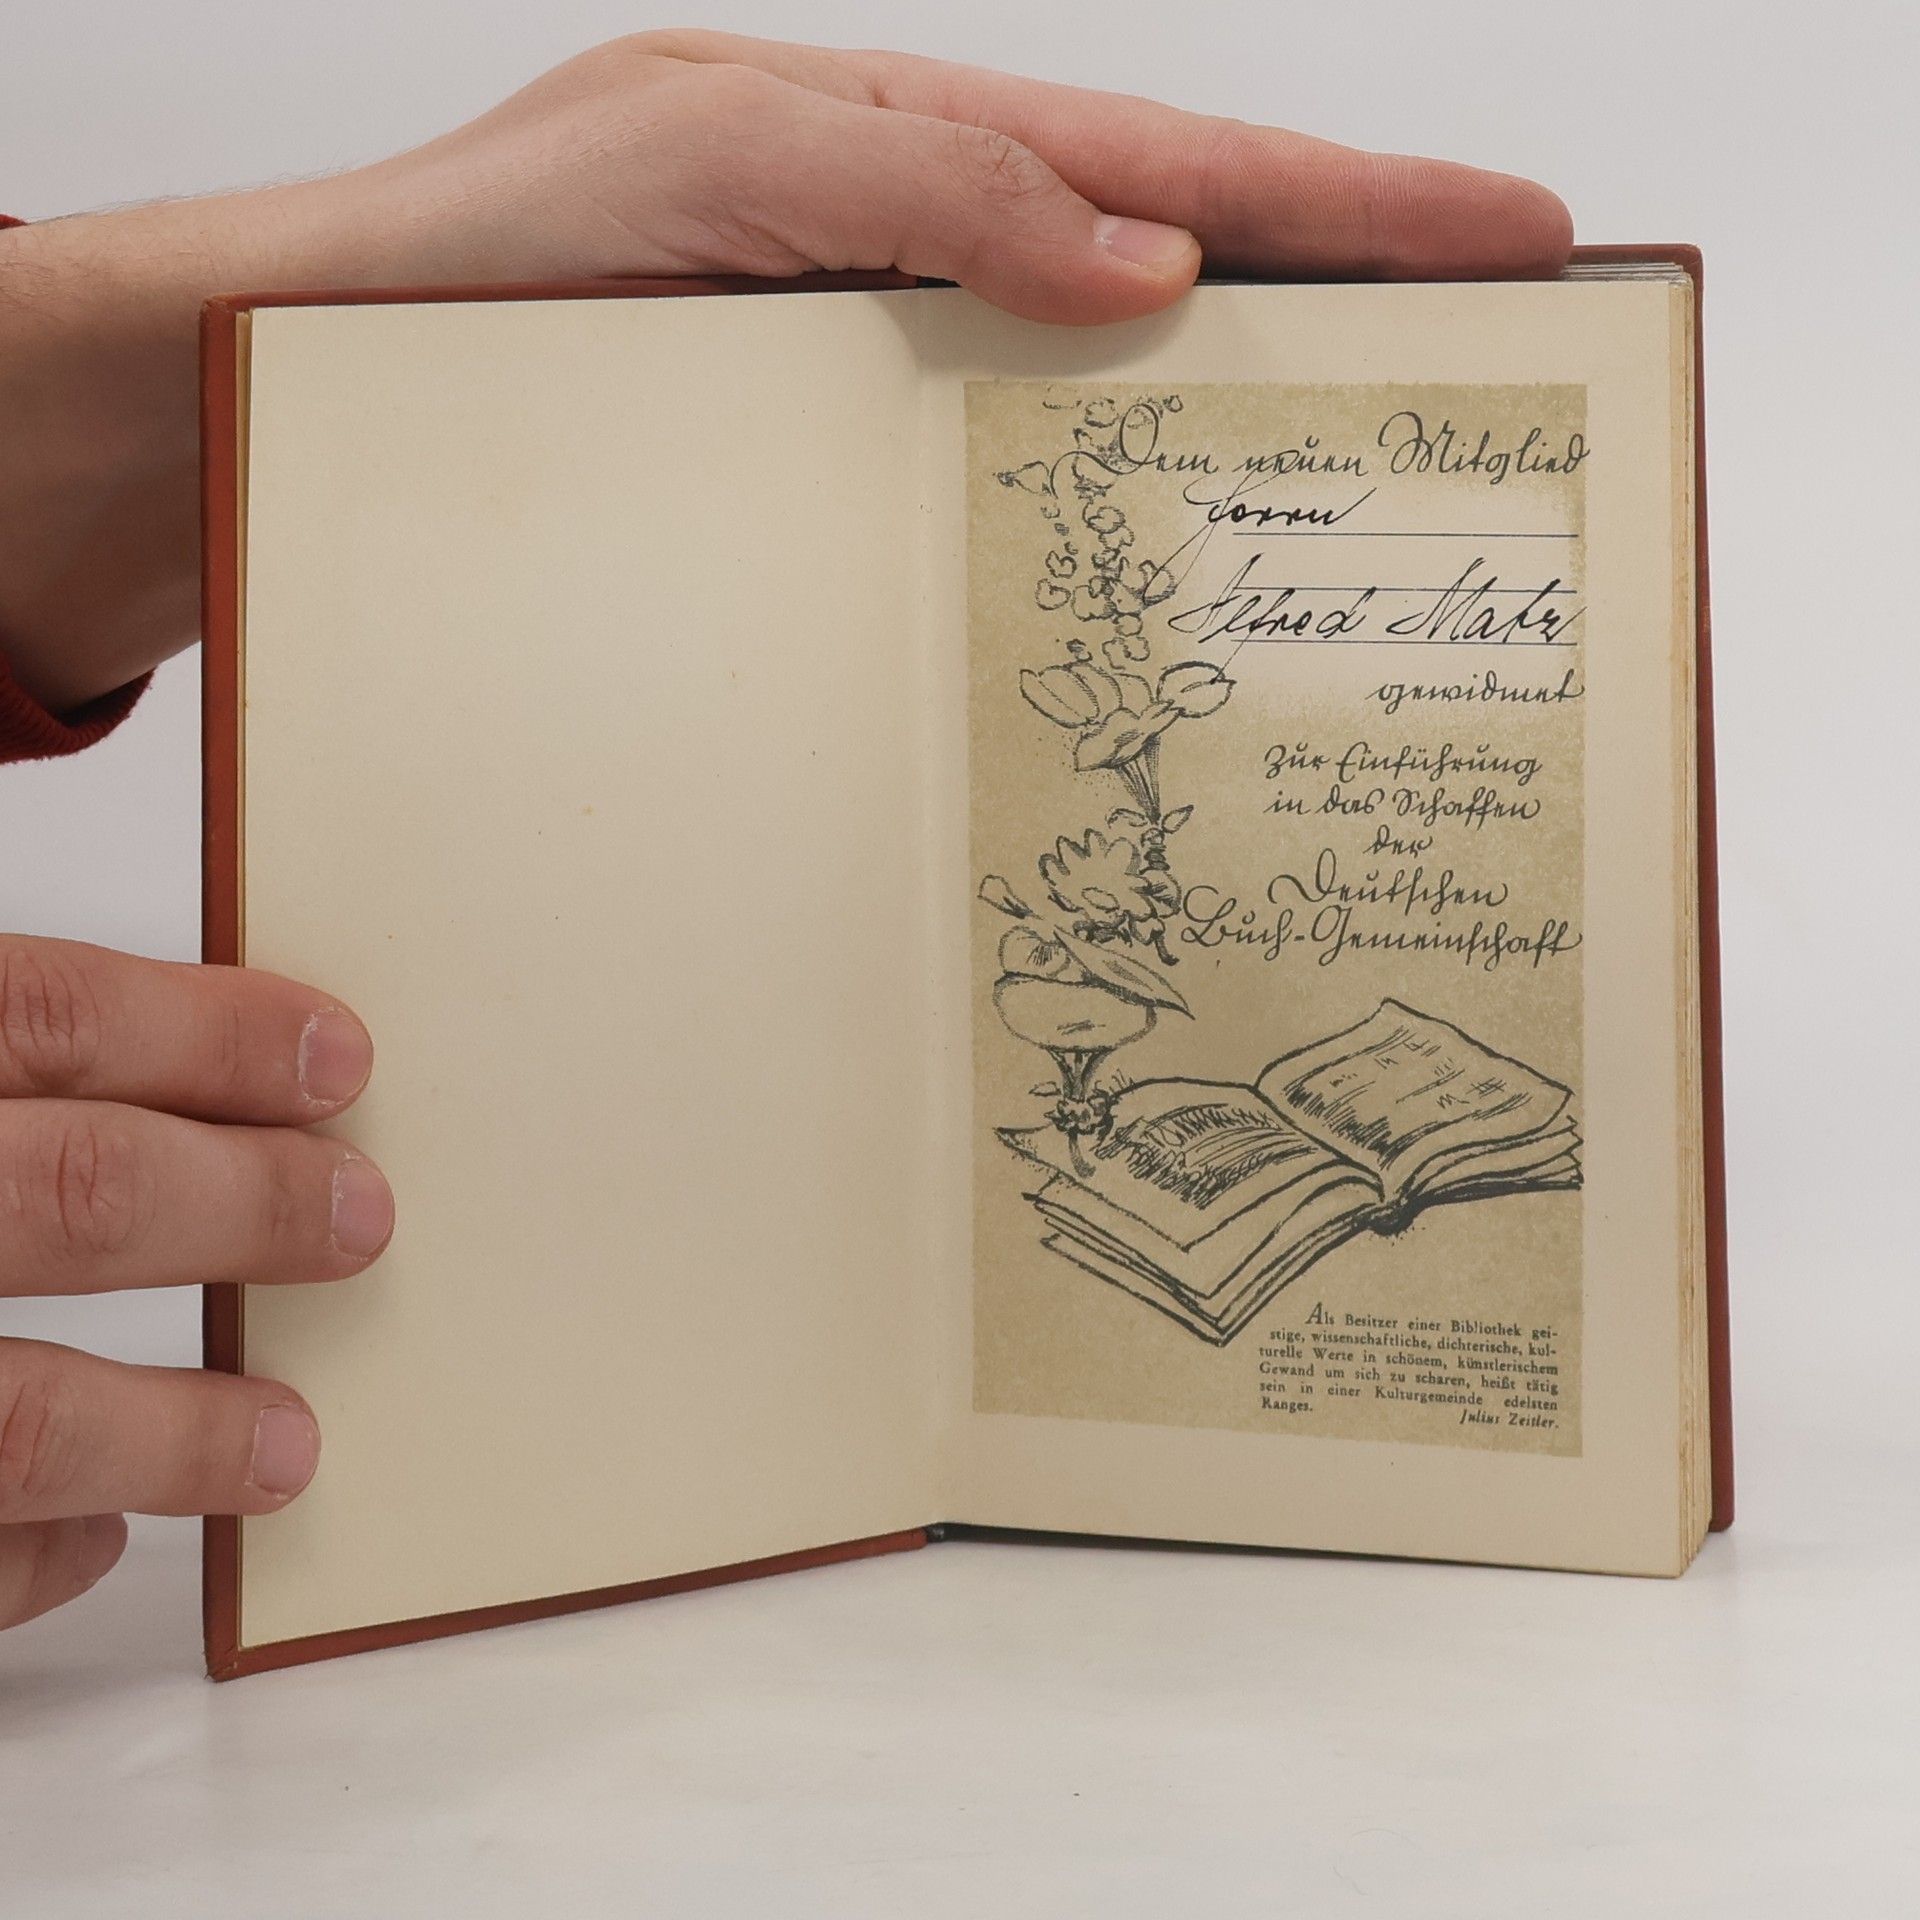 Dem neuen Mitglied
Herrn
Alfred Matz
gewidmet
Zur Einführung
in das Schaffen
der
Deutschen
Buch-Gemeinschaft
Als Besitzer einer Bibliothek gei-
stige, wissenschaftliche, dichterische, kul-
turelle Werte in schönem, künstlerischem
Gewand um sich zu scharen, heißt tätig
sein in einer Kulturgemeinde edelsten
Ranges. Julius Zeitler.